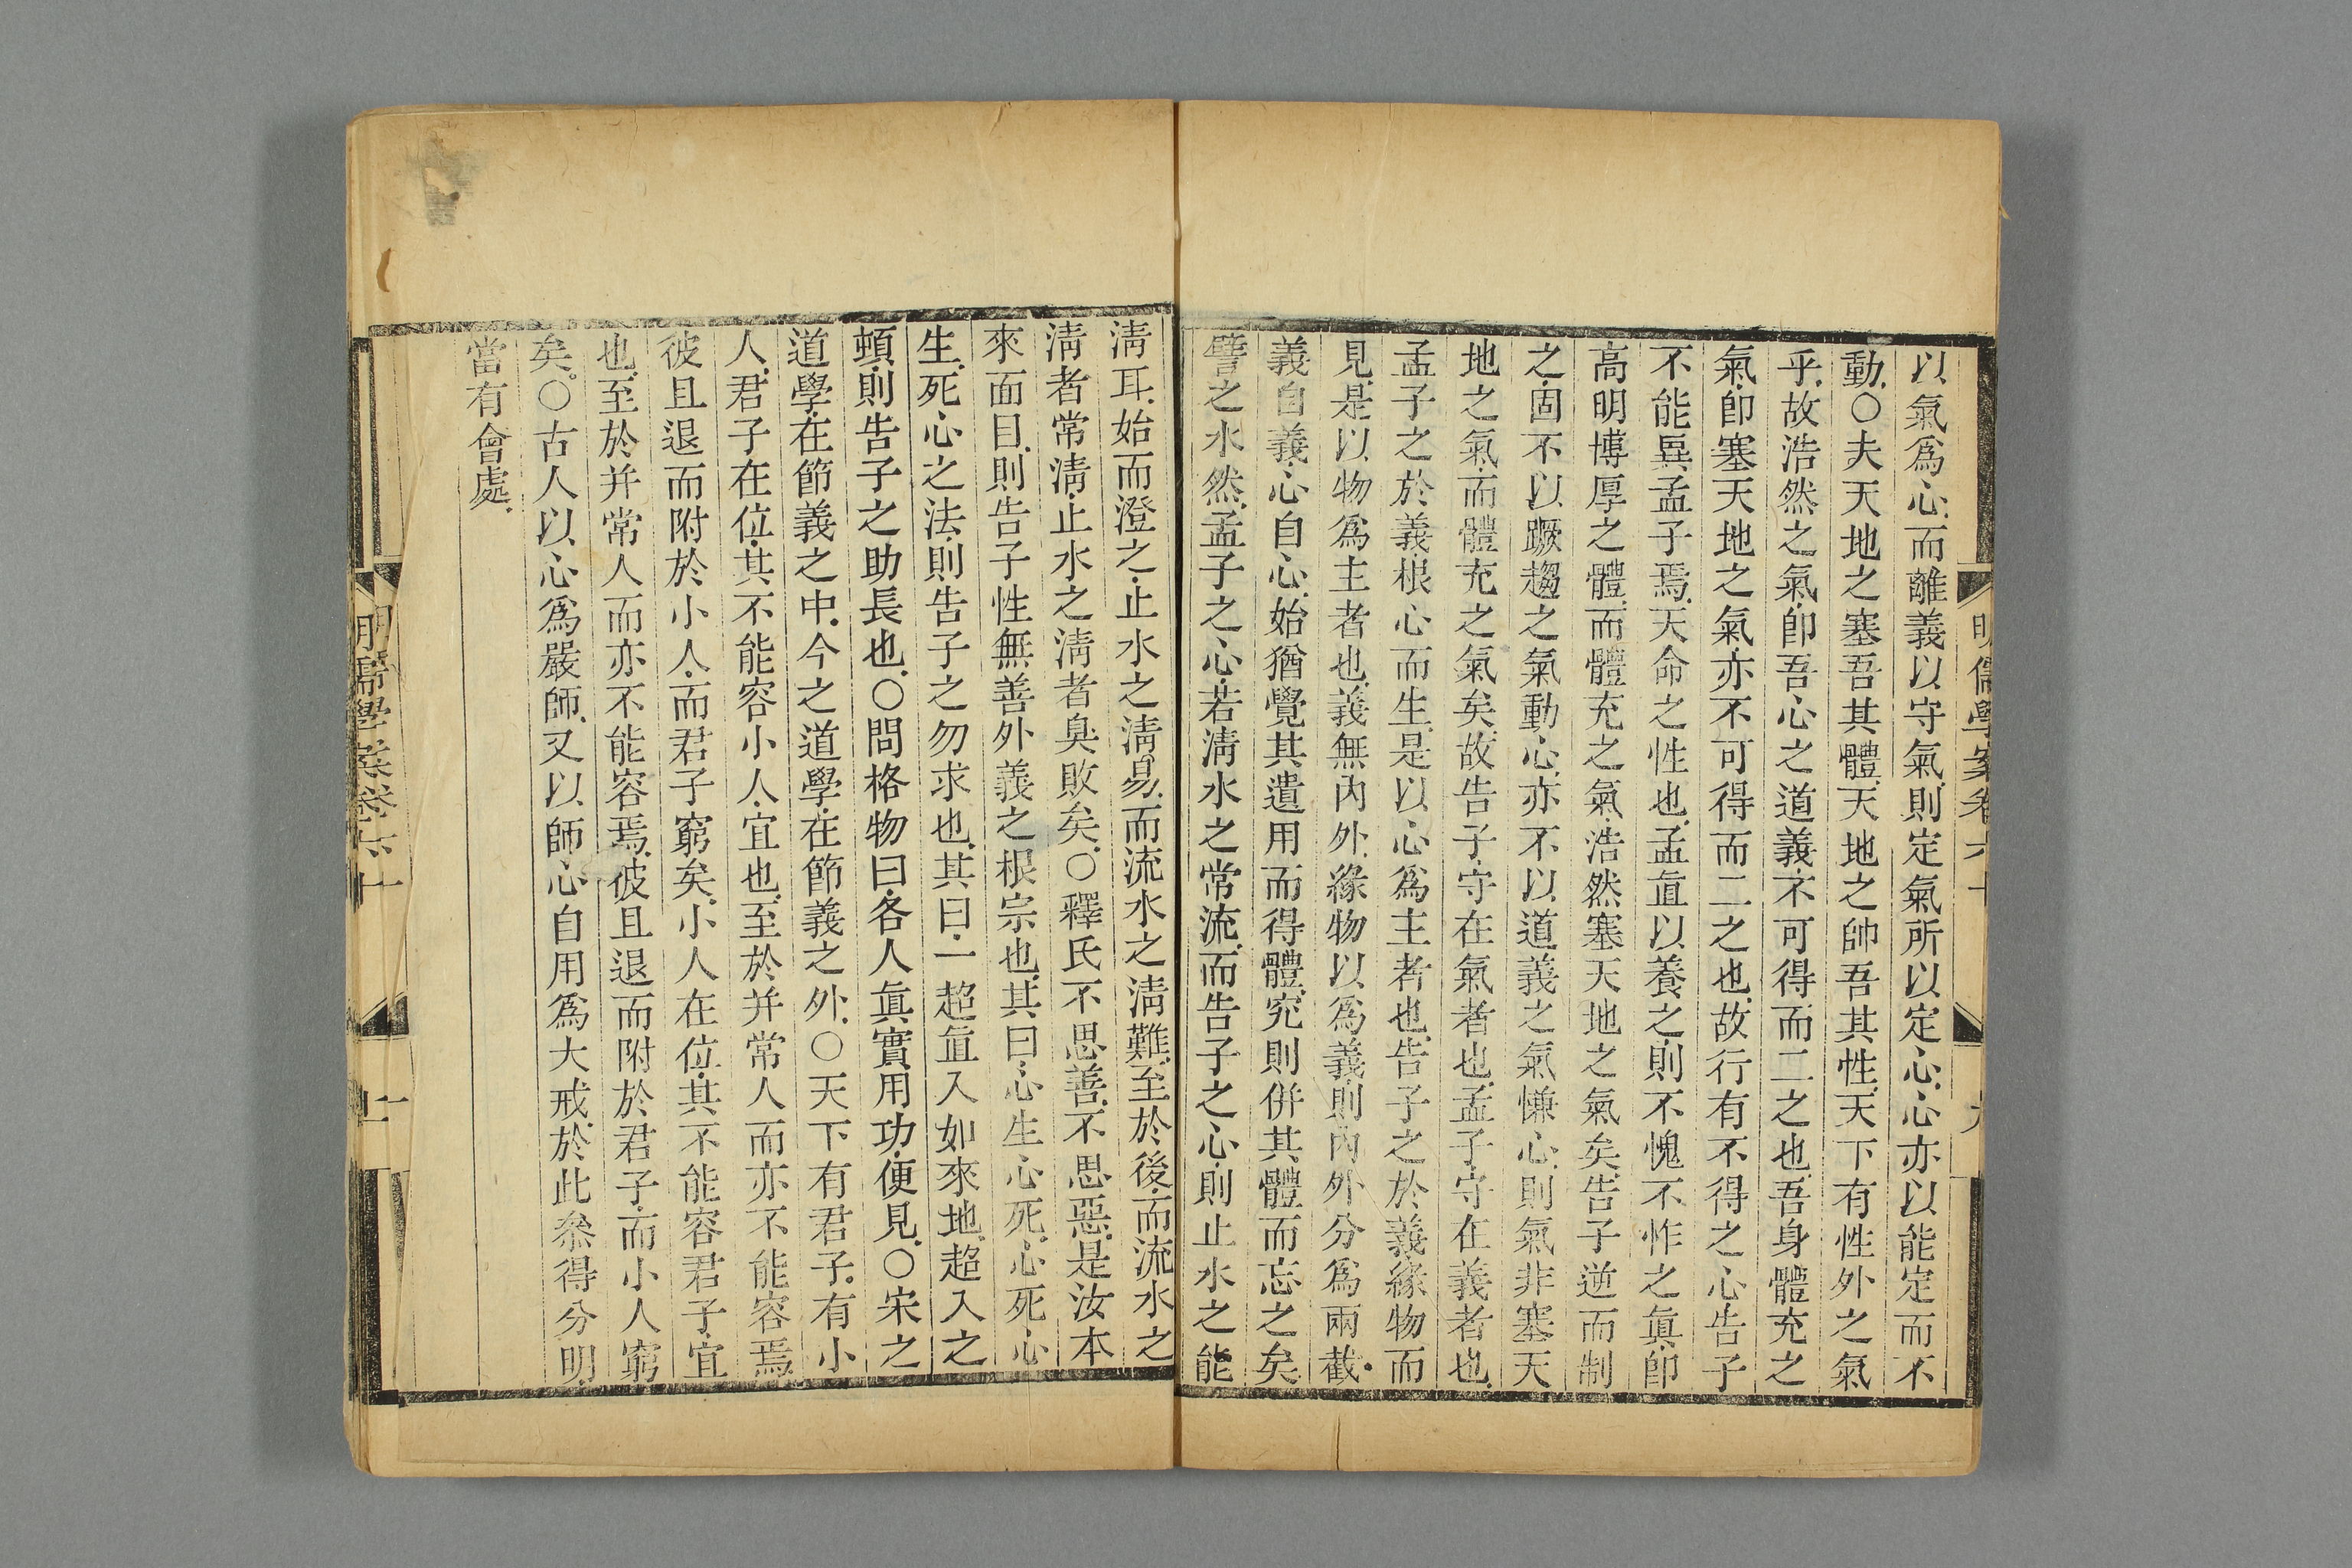 明儒學案卷六十
九
以氣爲心、而離義以守氣、則定氣所以定心、心亦以能定而不
動、○夫天地之塞吾其體、天地之帥吾其性、天下有性外之氣
乎、故浩然之氣、卽吾心之道義、不可得而二之也、吾身體充之
氣、卽塞天地之氣、亦不可得而二之也、故行有不得之心、告子
不能異孟子焉、天命之性也、孟直以養之、則不愧不怍之眞、卽
高明博厚之體、而體充之氣、浩然塞天地之氣矣、告子逆而制
之、固不以蹶趨之氣動心、亦不以道義之氣慊心、則氣非塞天
地之氣、而體充之氣矣、故告子守在氣者也、孟子守在義者也、
孟子之於義、根心而生、是以心爲主者也、告子之於義、緣物而
見、是以物爲主者也、義無內外、緣物以爲義、則內外分爲兩截、
義自義、心自心、始猶覺其遺用而得體、究則併其體而忘之矣、
譬之水然、孟子之心、若淸水之常流、而告子之心、則止水之能
淸耳、始而澄之、止水之淸易、而流水之淸難、至於後、而流水之
淸者常淸、止水之淸者臭敗矣、○釋氏不思善、不思惡、是汝本
來面目、則告子性無善外義之根宗也、其曰、心生心死、心死心
生、死心之法、則告子之勿求也、其曰、一超直入如來地、超入之
頓、則告子之助長也、○問格物曰、各人眞實用功、便見、○宋之
道學、在節義之中、今之道學、在節義之外、○天下有君子、有小
人、君子在位、其不能容小人、宜也、至於并常人而亦不能容焉、
彼且退而附於小人、而君子窮矣、小人在位、其不能容君子、宜
也、至於并常人而亦不能容焉、彼且退而附於君子、而小人窮
矣。○古人以心爲嚴師、又以師心自用爲大戒、於此叅得分明、
當有會處、
明儒學案卷六十
十